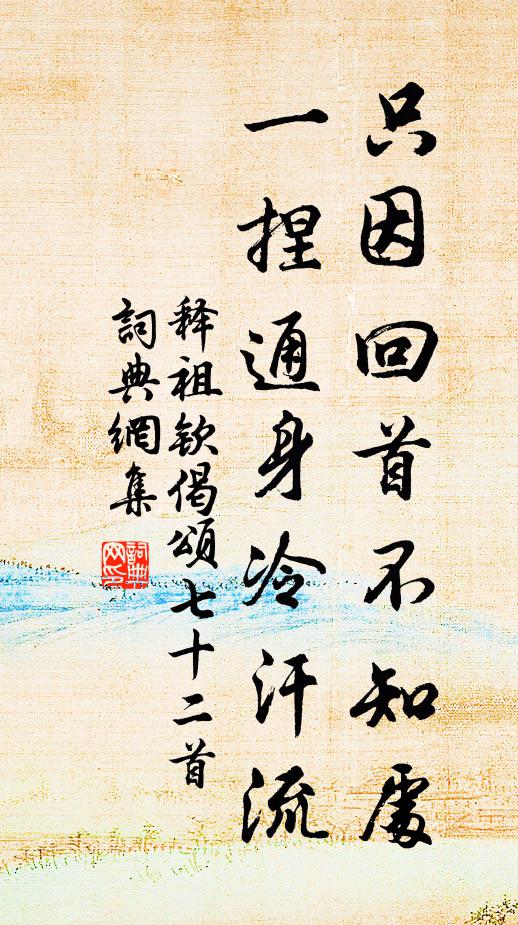 只因回首不知處
一捏通身冷汗流
释祖欽偈頌七十二首
詞典網集
詞典网印